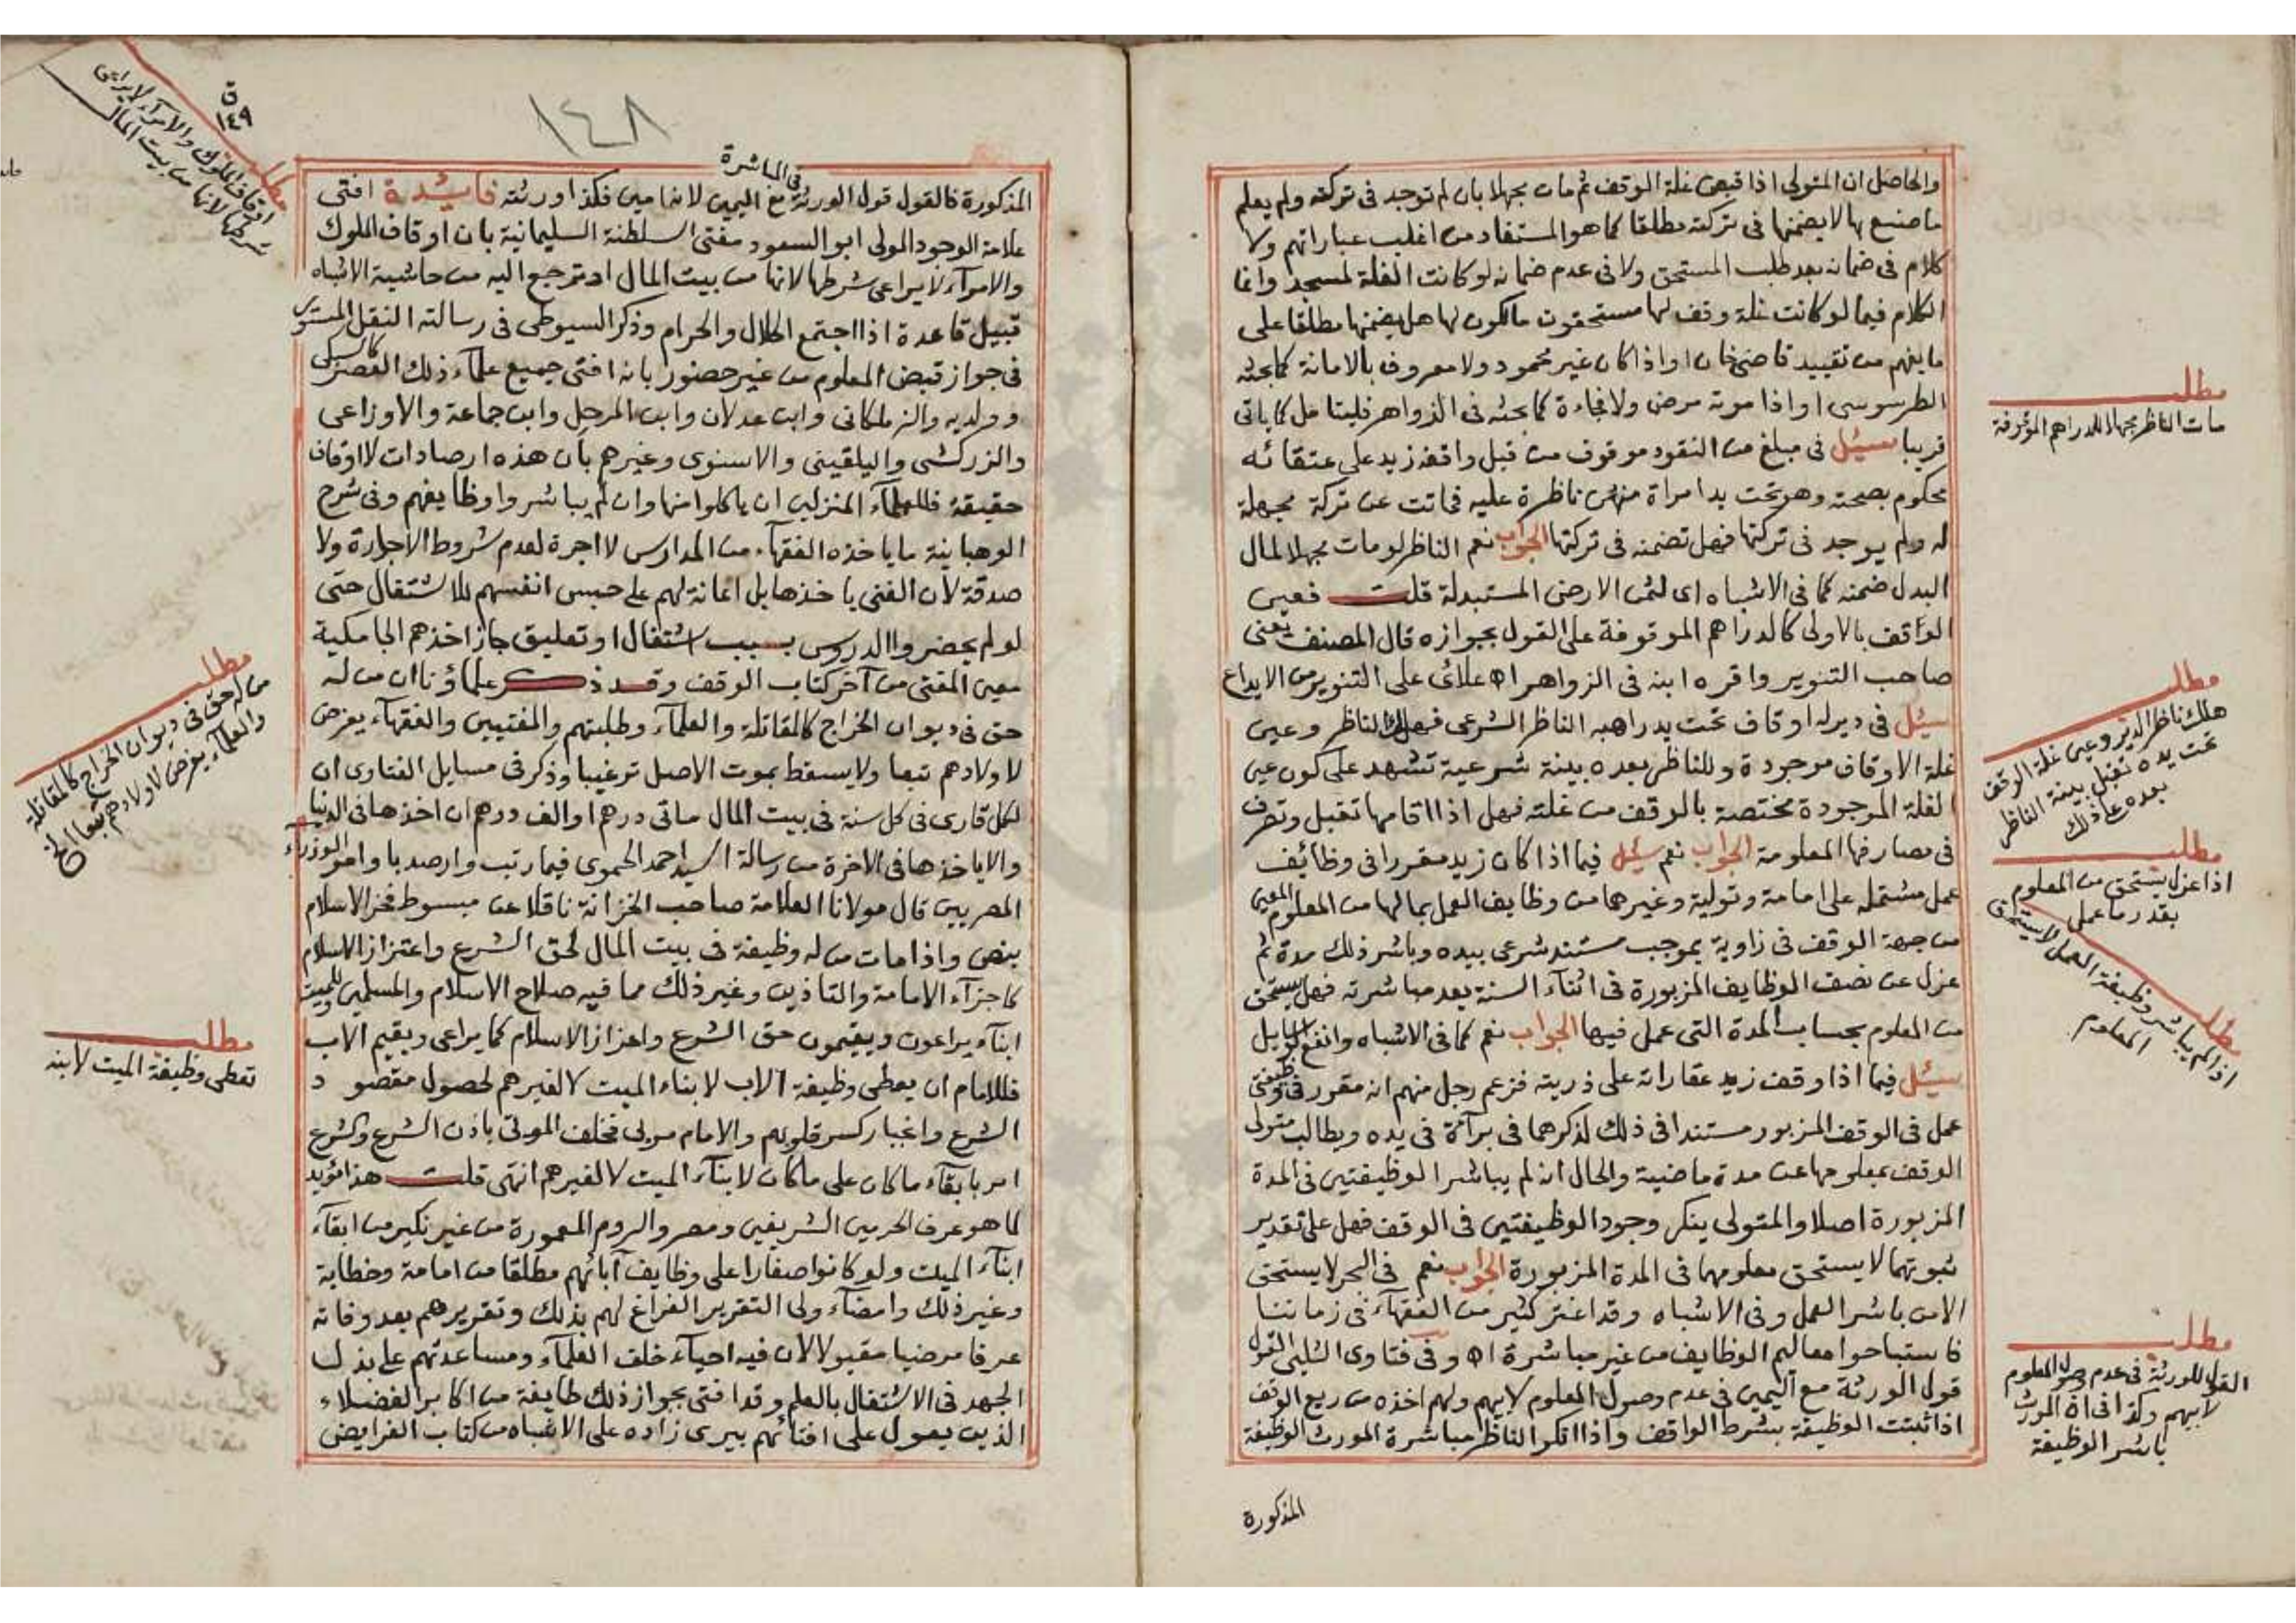 والحاصل ان المتولى اذا قبض غلة الوقف ثم مات مجهلا بان لم توجد فى تركته ولم يعلم
ما صنع بها لا يضمنها فى تركته مطلقا كما هو المستفاد من اغلب عباراتهم ولا
كلام فى ضمانه بعد طلب المستحق ولا فى عدم ضمانه لو كانت الغلة لمسجد وانما
الكلام فيما لو كانت غلة وقف لها مستحقون مالكون لها هل يضمنها مطلقا على
ما يفهم من تقييد قاضيخان او اذا كان غير محمود ولا معروف بالامانة كما بحثه
الطرسوسى او اذا موته بمرض ولا فجاءة كما بحثه فى الزواهر فليتامل كما ياتى
قريبا سئل فى مبلغ من النقود موقوف من قبل واقفه زيد على عتقائه
محكوم بصحته وهو تحت يد امراة منهن ناظرة عليه فماتت عن تركة مجهلة
له ولم يوجد فى تركتها فهل تضمنه فى تركتها الجواب نعم الناظر لو مات مجهلا لمال
البدل ضمنه كما فى الاشباه اى لثمن الارض المستبدلة قلت فعين
الواقف بالاولى كالدراهم الموقوفة على القول بجوازه قال المصنف يعنى
صاحب التنوير واقره ابنه فى الزواهر اه علائى على التنوير من الايداع
سئل فى دير له اوقاف تحت يد راهبه الناظر الشرعى فهلك الناظر وعين
غلة الاوقاف موجودة وللناظر بعده بينة شرعية تشهد على كون عين
الغلة الموجودة مختصة بالوقف من غلته فهل اذا اقامها تقبل وتصرف
فى مصارفها المعلومة الجواب نعم سئل فيما اذا كان زيد مقررا فى وظائف
عمل مشتملة على امامة وتولية وغيرهما من وظايف العمل بما لها من المعلوم المعين
من جهة الوقف فى زاوية بموجب مستند شرعى بيده وباشر ذلك مدة ثم
عزل عن نصف الوظايف المزبورة فى اثناء السنة بعد مباشرته فهل يستحق
من المعلوم بحساب المدة التى عمل فيها الجواب نعم كما فى الاشباه وانفع الوسايل
سئل فيما اذا وقف زيد عقاراته على ذريته فزعم رجل منهم انه مقرر فى وظيفتى
عمل فى الوقف المزبور مستندا فى ذلك لذكرهما فى براءة فى يده ويطالب متولى
الوقف بمعلومها عن مدة ماضية والحال انه لم يباشر الوظيفتين فى المدة
المزبورة اصلا والمتولى ينكر وجود الوظيفتين فى الوقف فهل على تقدير
ثبوتهما لا يستحق معلومهما فى المدة المزبورة الجواب نعم فى البحر لا يستحق
الا من باشر العمل وفى الاشباه وقد اغتر كثير من الفقهآء فى زماننا
فاستباحوا معاليم الوظايف من غير مباشرة اه وفى فتاوى الشلبى القول
قول الورثة مع اليمين فى عدم وصول المعلوم لابيهم ولهم اخذه من ريع الوقف
اذا ثبتت الوظيفة بشرط الواقف واذا انكر الناظر مباشرة المورث الوظيفة
المذكورة
مطلب
مات الناظر مجهلا للدراهم الموقوفة
مطلب
هلك ناظر الدير وعين غلة الوقف
تحت يده تقبل بينة الناظر
بعده على ذلك
مطلب
اذا عزل يستحق من المعلوم
بقدر ما عمل
مطلب
اذا لم يباشر وظيفة العمل لا يستحق
المعلوم
مطلب
القول للورثة فى عدم وصول المعلوم
لابيهم وكذا فى ان المورث
باشر الوظيفة
١٤٨
ق
١٤٩
فى المباشرة
المذكورة فالقول قول الورثة مع اليمين لانه امين فكذا ورثته فائدة افتى
علامة الوجود المولى ابو السعود مفتى السلطنة السليمانية بان اوقاف الملوك
والامرآء لا يراعى شرطها لانها من بيت المال او ترجع اليه من حاشية الاشباه
قبيل قاعدة اذا اجتمع الحلال والحرام وذكر السيوطى فى رسالته النقل المستور
فى جواز قبض المعلوم من غير حضور بانه افتى جميع علمآء ذلك العصر كالسبكى
وولديه والزملكانى وابن عدلان وابن المرحل وابن جماعة والاوزاعى
والزركشى والبلقينى والاسنوى وغيرهم بان هذه ارصادات لا اوقاف
حقيقة فللعلمآء المنزلين ان ياكلوا منها وان لم يباشروا وظايفهم وفى شرح
الوهبانية ما ياخذه الفقهآء من المدارس لا اجرة لعدم شروط الاجارة ولا
صدقة لان الغنى ياخذها بل اعانة لهم على حبس انفسهم للاشتغال حتى
لو لم يحضروا الدروس بسبب اشتغال او تعليق جاز اخذهم الجامكية
معين المفتى من آخر كتاب الوقف وقد ذكر علماؤنا ان من له
حق فى ديوان الخراج كالمقاتلة والعلمآء وطلبتهم والمفتيين والفقهآء يفرض
لاولادهم تبعا ولا يسقط بموت الاصل ترغيبا وذكر فى مسايل الفتاوى ان
لكل قارى فى كل سنة فى بيت المال ماتى درهم او الف درهم ان اخذها فى الدنيا
والا ياخذها فى الاخرة من رسالة السيد احمد الحموى فيما رتب وارصد بامر الوزراء
المصريين قال مولانا العلامة صاحب الخزانة ناقلا عن مبسوط فخر الاسلام
بنص واذا مات من له وظيفة فى بيت المال لحق الشرع واعتزاز الاسلام
كاجرآء الامامة والتاذين وغير ذلك مما فيه صلاح الاسلام والمسلمين وللميت
ابنآء يراعون ويقيمون حق الشرع واعزاز الاسلام كما يراعى ويقيم الاب
فللامام ان يعطى وظيفة الاب لابناء الميت لا لغيرهم لحصول مقصود
الشرع واغبار كسر قلوبهم والامام مربى فخلف الموتى باذن الشرع والشرع
امر بابقآء ما كان على ما كان لابنآء الميت لا لغيرهم انتهى قلت هذا مؤيد
لما هو عرف الحرمين الشريفين ومصر والروم المعمورة من غير نكير من ابقآء
ابنآء الميت ولو كانوا صغارا على وظايف آبائهم مطلقا من امامة وخطابة
وغير ذلك وامضآء ولى التقرير الفراغ لهم بذلك وتقريرهم بعد وفاته
عرفا مرضيا مقبولا لان فيه احيآء خلف العلمآء ومساعدتهم على بذل
الجهد فى الاشتغال بالعلم وقد افتى بجواز ذلك طايفة من اكابر الفضلاء
الذين يعول على افتائهم بيرى زاده على الاشباه من كتاب الفرايض
مطلب
اوقاف الملوك والامرآء لا يراعى
شرطها لانها من بيت المال
مطلب
من له حق فى ديوان الخراج كالمقاتلة
والعلمآء يفرض لاولادهم تبعا الخ
مطلب
تعطى وظيفة الميت لابنه